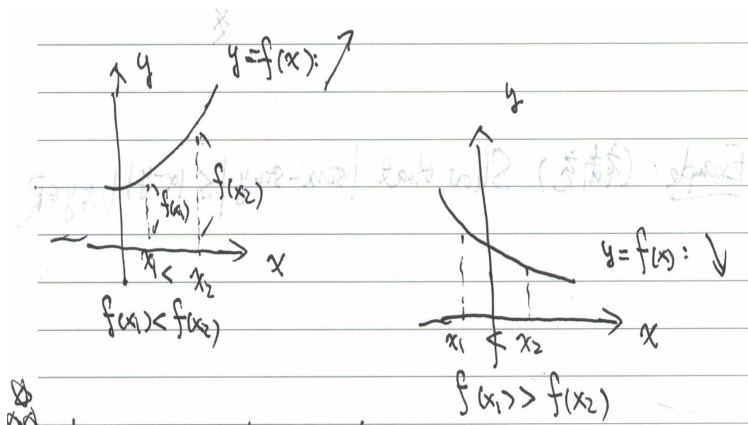 y
y=f(x): ↗
f(x₁)
f(x₂)
x₁ < x₂
x
f(x₁) < f(x₂)
y
y=f(x): ↘
x₁ < x₂
x
f(x₁) > f(x₂)